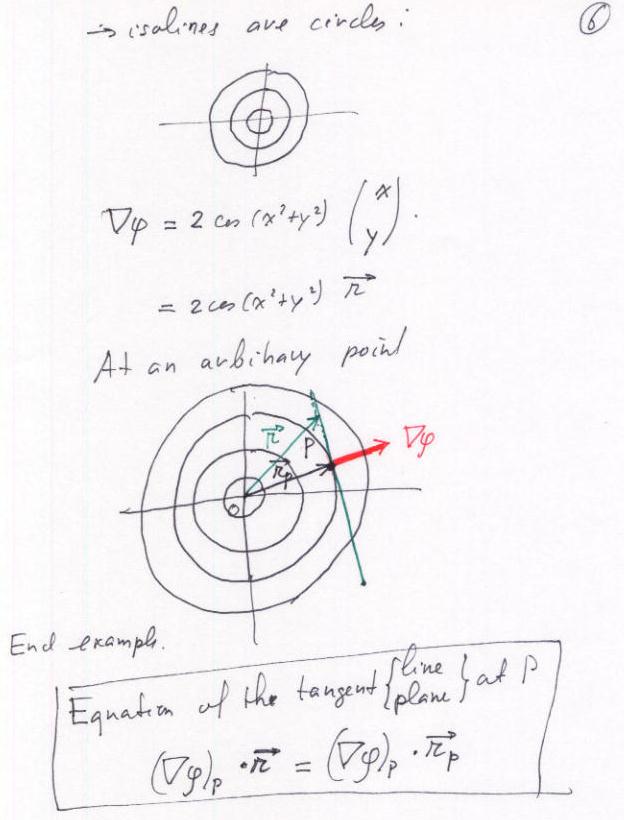 → isolines are circles:
⑥
∇φ = 2 cos (x²+y²) (x y).
= 2 cos (x²+y²) r⃗
At an arbitrary point
r⃗
P
∇φ
r⃗p
O
End example.
Equation of the tangent {line plane} at P
(∇φ)p · r⃗ = (∇φ)p · r⃗p